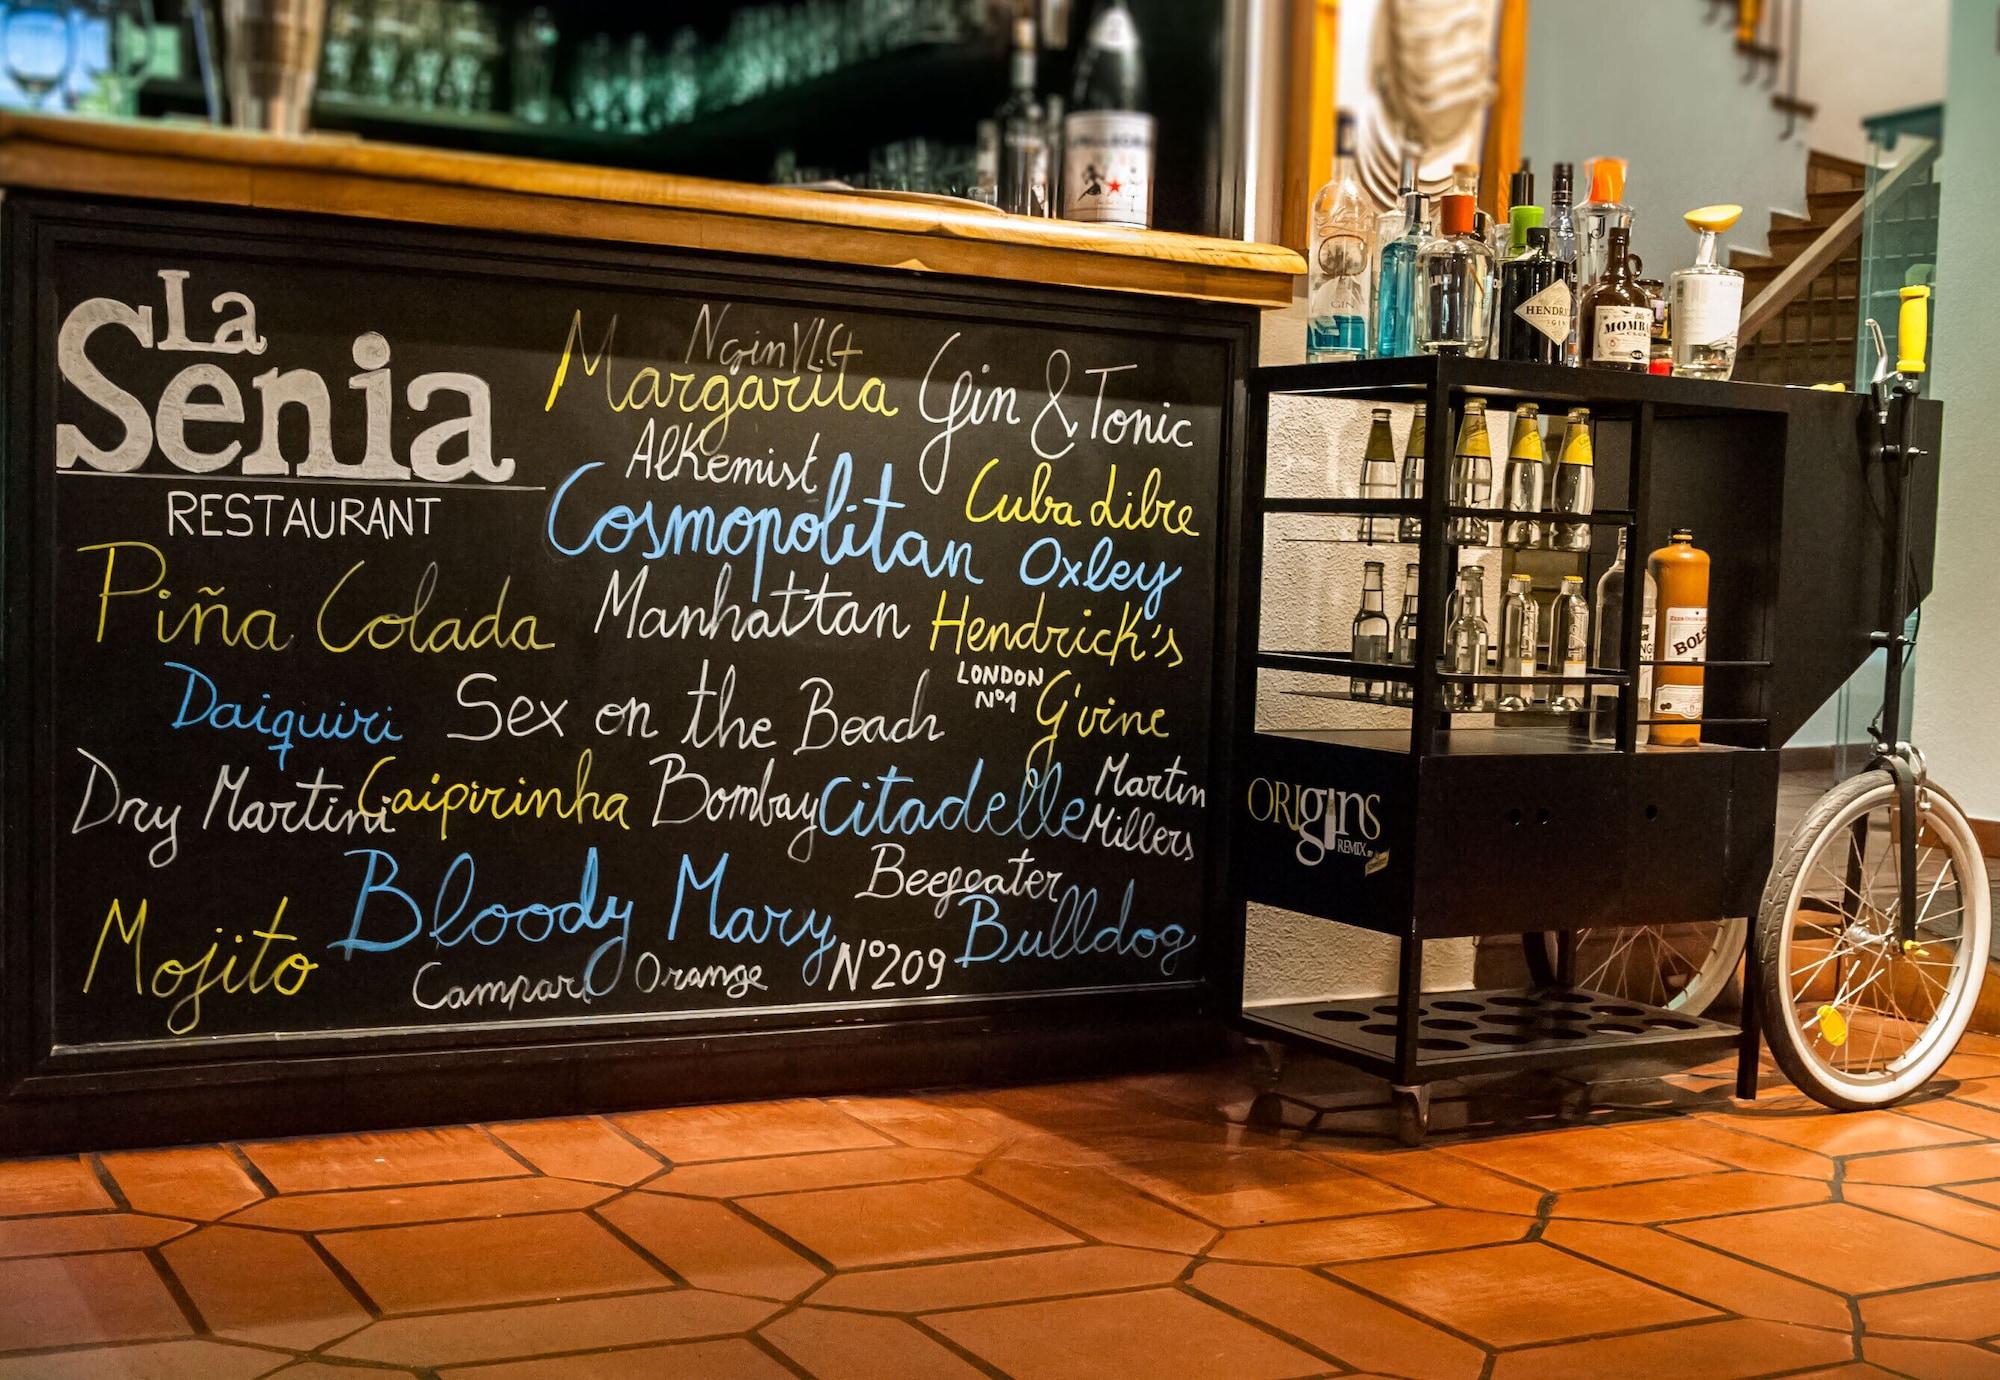 La
Senia
RESTAURANT
NginVLCt
Margarita
Gin & Tonic
Alkemist
Cosmopolitan
Cuba Libre
Oxley
Piña Colada
Manhattan
Hendrick's
Daiquiri
Sex on the Beach
LONDON
Nº1
G'vine
Dry Martini
Caipirinha
Bombay
Citadelle
Martin
Millers
Bloody Mary
Beefeater
Bulldog
Mojito
Campari Orange
Nº209
GIN
HENDRICK
GIN
MOMBA
CLUB
BOLS
ORIgins
REMIX